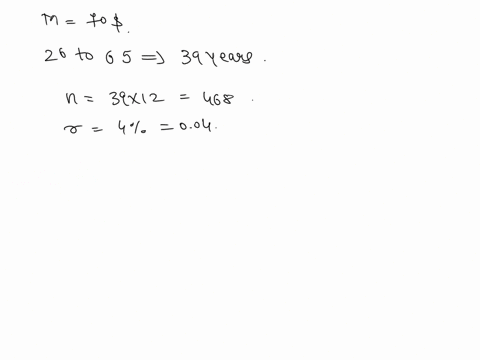 m = 70 $.
26 to 65 => 39 years.
n = 39x12 = 468.
r = 4% = 0.04.